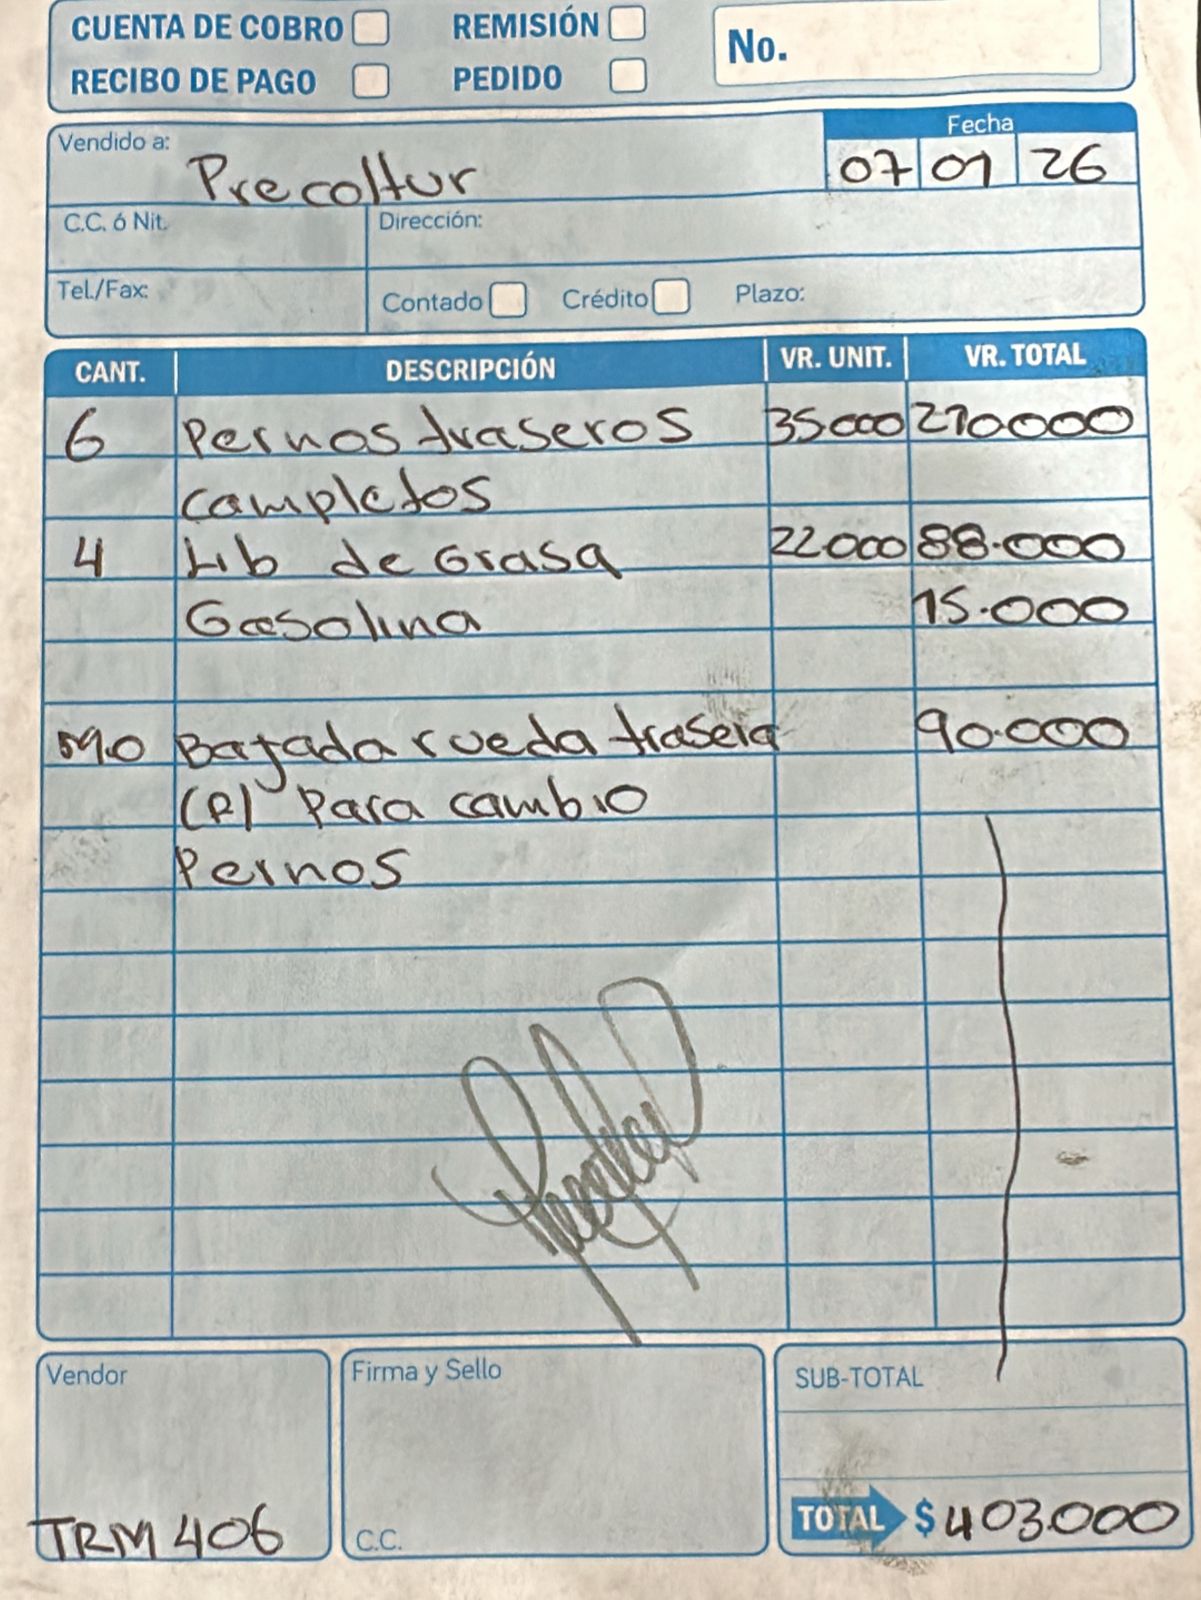 CUENTA DE COBRO REMISIÓN No.
RECIBO DE PAGO PEDIDO
Vendido a: Precoltur Fecha
07 01 26
C.C. ó Nit. Dirección:
Tel./Fax: Contado Crédito Plazo:
CANT. DESCRIPCIÓN VR. UNIT. VR. TOTAL
6 Pernos traseros 35000 210000
completos
4 Lib de Grasa 22000 88.000
Gasolina 15.000
M.O Bajada rueda trasera 90.000
(R) Para cambio
Pernos
Vendor Firma y Sello SUB-TOTAL
TRM 406 C.C. TOTAL $ 403.000